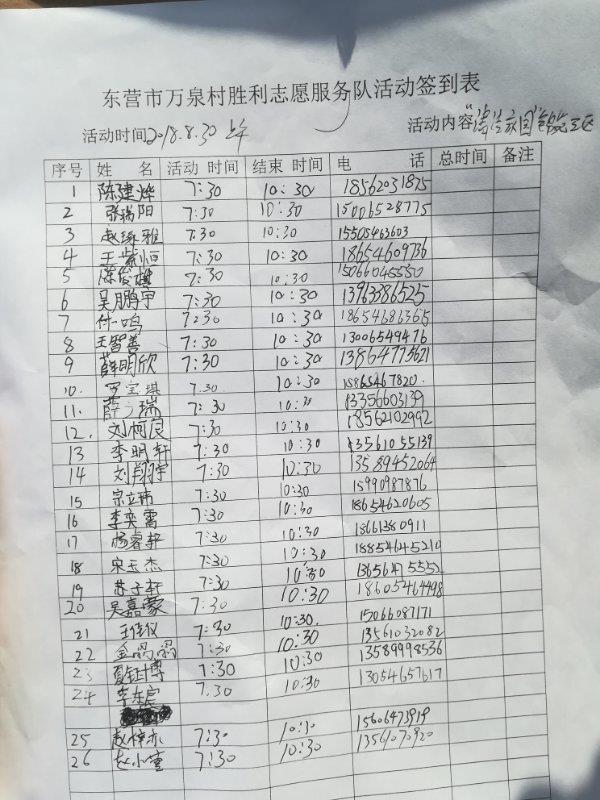 东营市万泉村胜利志愿服务队活动签到表
活动时间2018.8.30 上午 活动内容“清洁家园”
序号 姓 名 活动 时间 结束 时间 电 话 总时间 备注
1 陈建烨 7:30 10:30 18562031825
2 张瑞阳 7:30 10:30 15006528775
3 赵琢雅 7:30 10:30 15505463603
4 王 恒 7:30 10:30 18654609736
5 陈俊 7:30 10:30 15066045550
6 吴鹏宇 7:30 10:30 13963386525
7 付一鸣 7:30 10:30 18654686365
8 王智善 7:30 10:30 13006549476
9 薛明欣 7:30 10:30 13864775621
10. 罗宝琪 7.30 10:30 15865467820.
11. 薛 瑞 7:30 10:30 13356603139
12. 刘柯良 7:30 10:30 18562102992
13 李明轩 7:30 10:30 13561055139
14 刘翔宇 7:30 10:30 13589452064
15 宗立 7:30 10:30 15990987876
16 李奕霄 7:30 10:30 18654620605
17 杨睿轩 7:30 10:30 18661380911
18 宋玉杰 7:30 10:30 18854645210
19 苏子轩 7:30 10:30 13656475552
20 吴嘉蒙 7:30 10:30 18605464498
21 王佳仪 7:30 10:30. 15066087171
22 7:30 10:30 13561032082
23 博 7:30 10:30 13589998536
24 李东宸 7.30 10:30 13054657617
25 赵梓亦 7:30 10:30 15606473919
26 赵小萱 7:30 10:30 1356107092​0